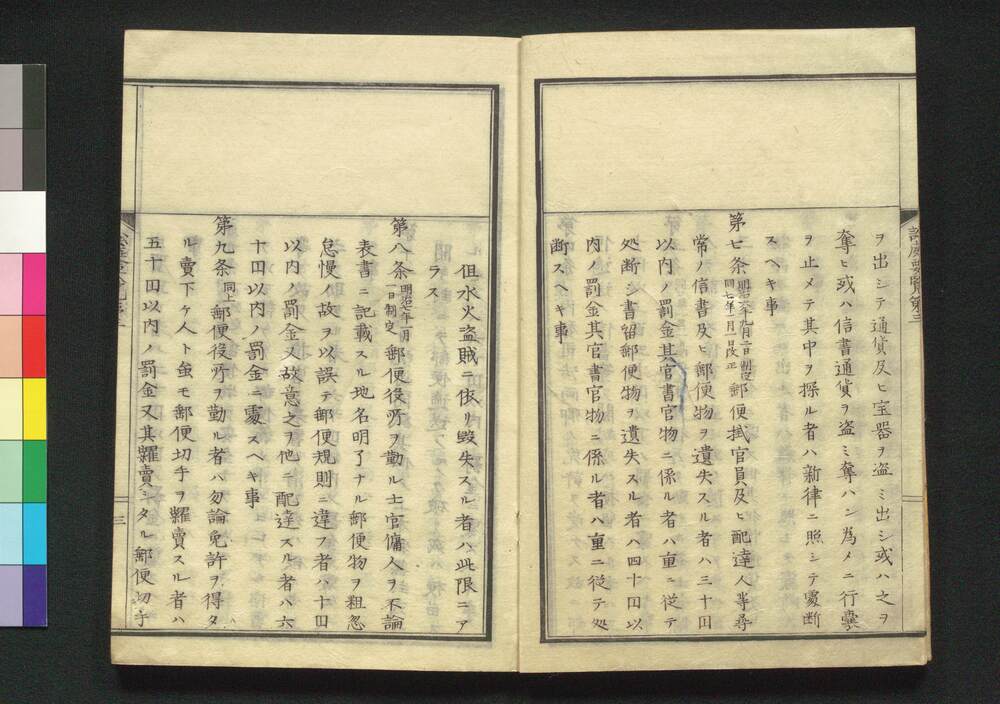 ヲ出シテ通貨及ヒ宝器ヲ盗ミ出シ或ハ之ヲ
奪ヒ或ハ信書通貨ヲ盗ミ奪ハン為メニ行嚢
ヲ止メテ其中ヲ探ル者ハ新律ニ照シテ處断
スヘキ事
第七条明治六年九月二日制定同七年一月一日改正郵便扱官員及ヒ配達人等尋
常ノ信書及ヒ郵便物ヲ遺失スル者ハ三十円
以内ノ罰金其官書官物ニ係ル者ハ重ニ從テ
処断シ書留郵便物ヲ遺失スル者ハ四十円以
内ノ罰金其官書官物ニ係ル者ハ重ニ従テ処
断スヘキ事
但水火盗賊ニ依リ毀失スル者ハ此限ニア
ラス
第八条明治七年一月一日制定郵便役所ヲ勤ル士官傭人ヲ不論
表書ニ記載スル地名明了ナル郵便物ヲ粗忽
怠慢ノ故ヲ以誤テ郵便規則ニ違フ者ハ十円
以内ノ罰金又故意之ヲ他ニ配達スル者ハ六
十円以内ノ罰金ニ處スヘキ事
第九条同上郵便役所ヲ勤ル者ハ勿論免許ヲ得タ
ル賣下ケ人ト雖モ郵便切手ヲ糶賣スル者ハ
五十円以内ノ罰金又其糶賣シタル郵便切手
三